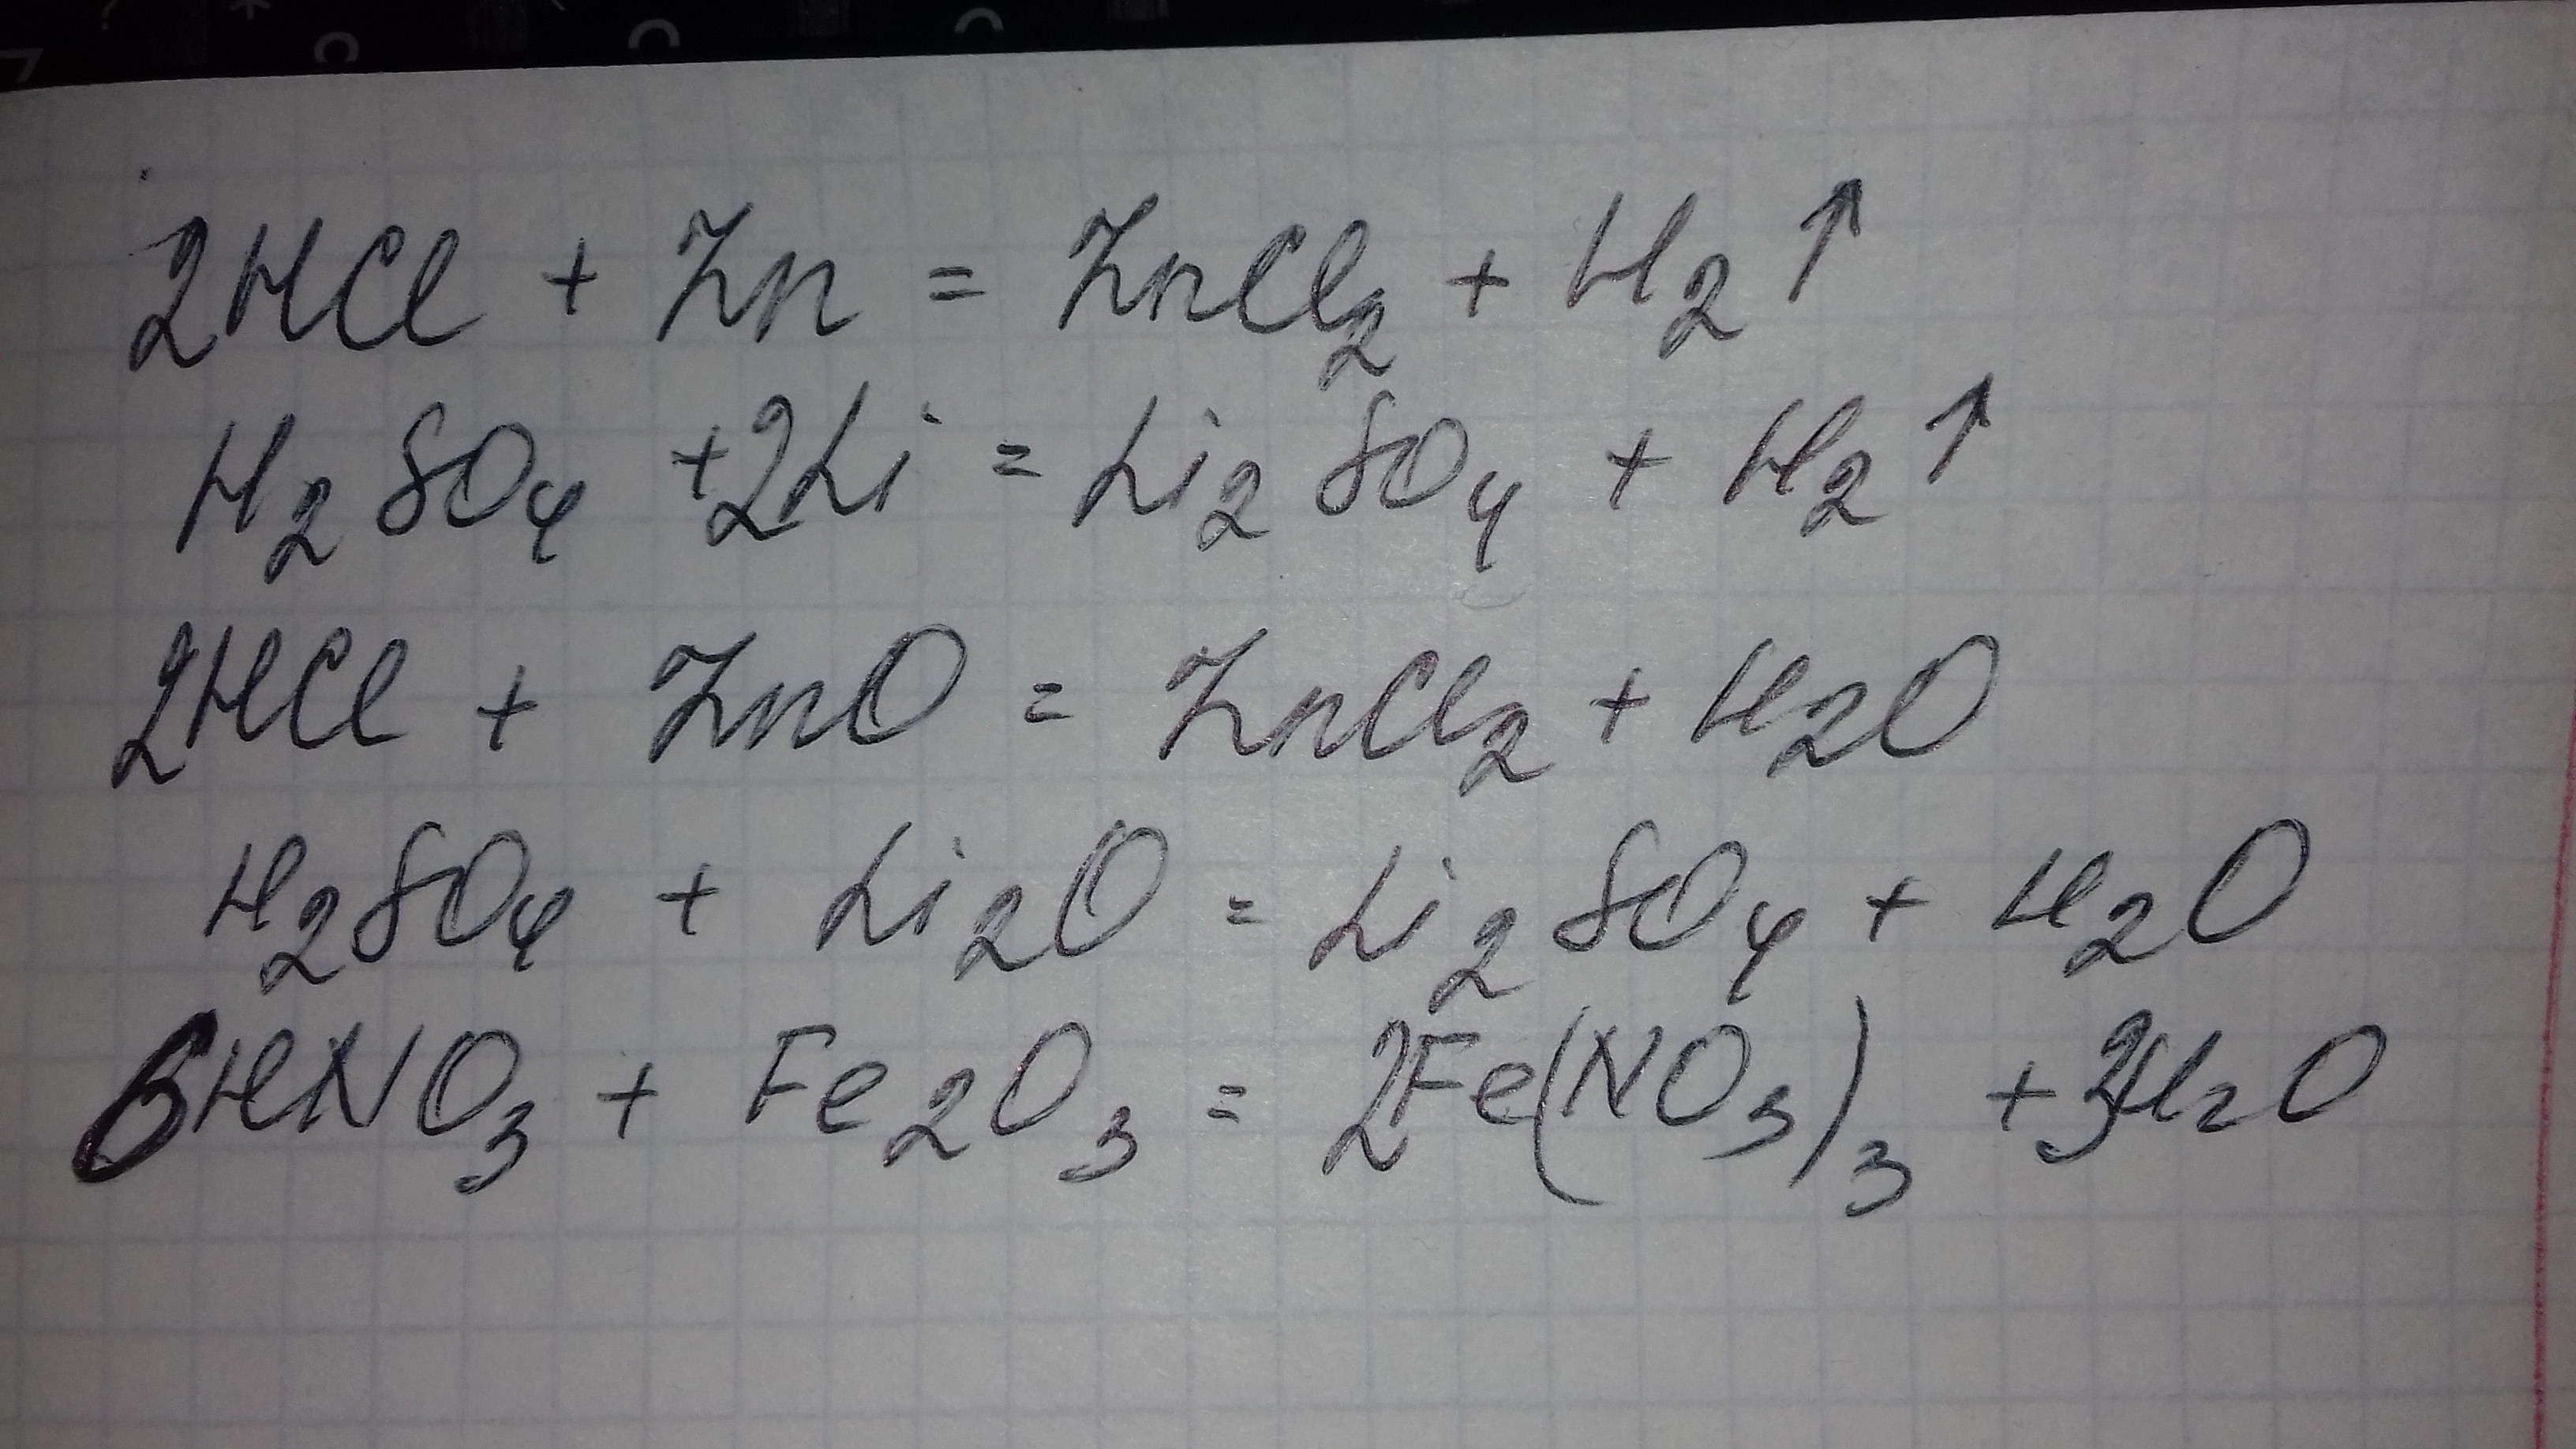 2HCl + Zn = ZnCl₂ + H₂↑
H₂SO₄ + 2Li = Li₂SO₄ + H₂↑
2HCl + ZnO = ZnCl₂ + H₂O
H₂SO₄ + Li₂O = Li₂SO₄ + H₂O
6HNO₃ + Fe₂O₃ = 2Fe(NO₃)₃ + 3H₂O